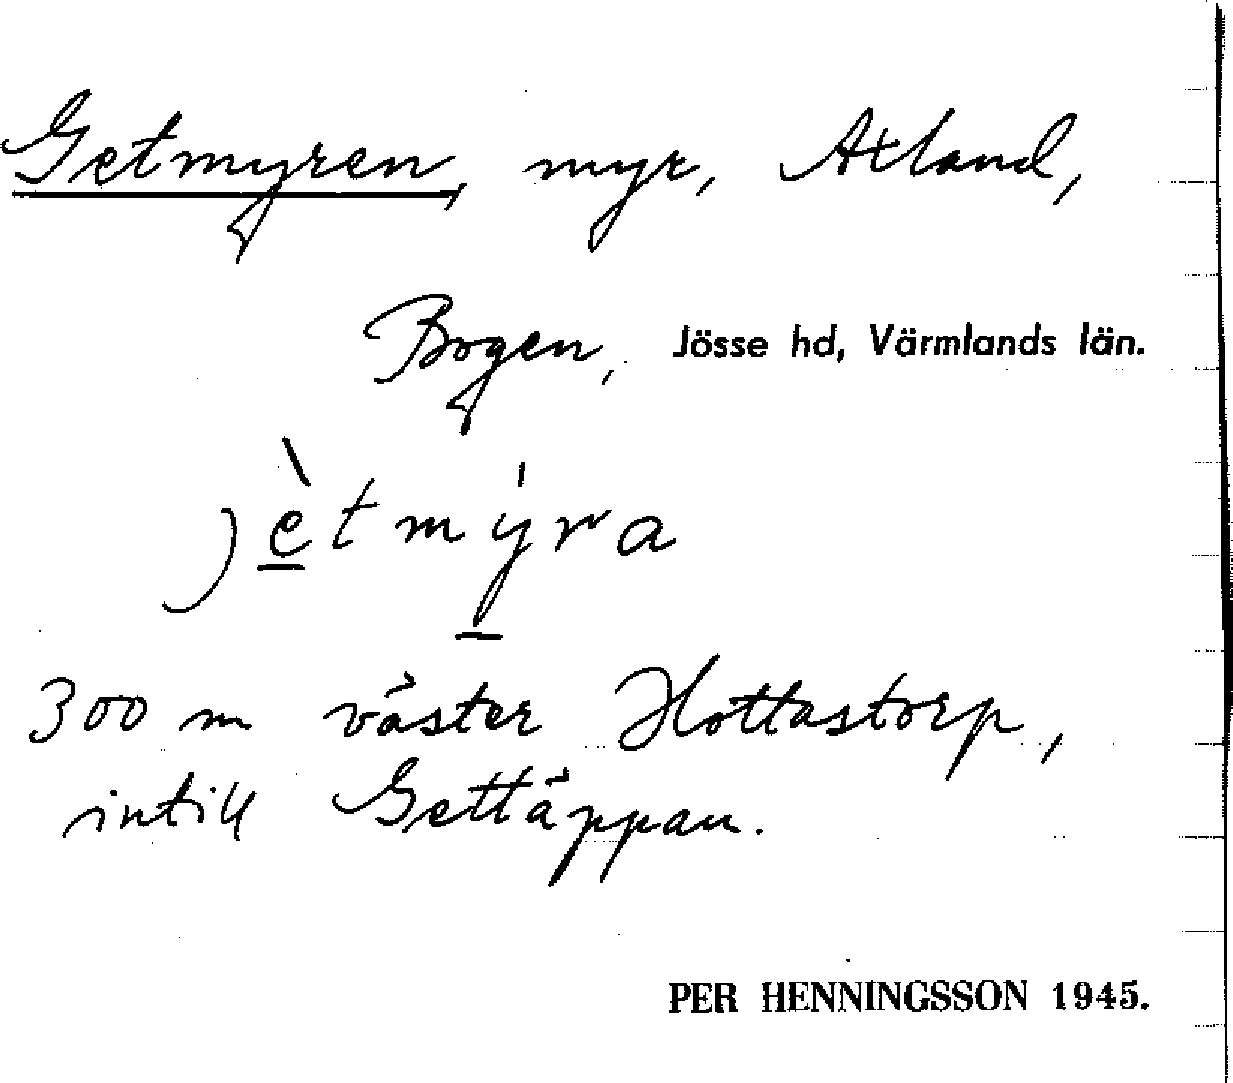 Getmyren, myr, Axland,
Bogen, Jösse hd, Värmlands län.
jè̱tmý̱ra
300 m väster Hottastorp,
intill Gettäppan.
PER HENNINGSSON 1945.